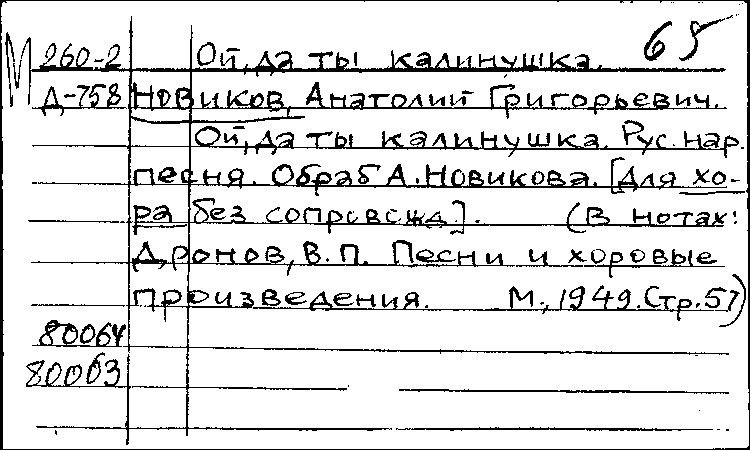 М 260-2 Ой, да ты калинушка. 65
Д-758 Новиков, Анатолий Григорьевич.
Ой, да ты калинушка. Рус. нар.
песня. Обраб А. Новикова. [Для хо-
ра без сопровожд]. (В нотах:
Дронов, В.П. Песни и хоровые
произведения. М., 1949. Стр. 57)
80064
80063